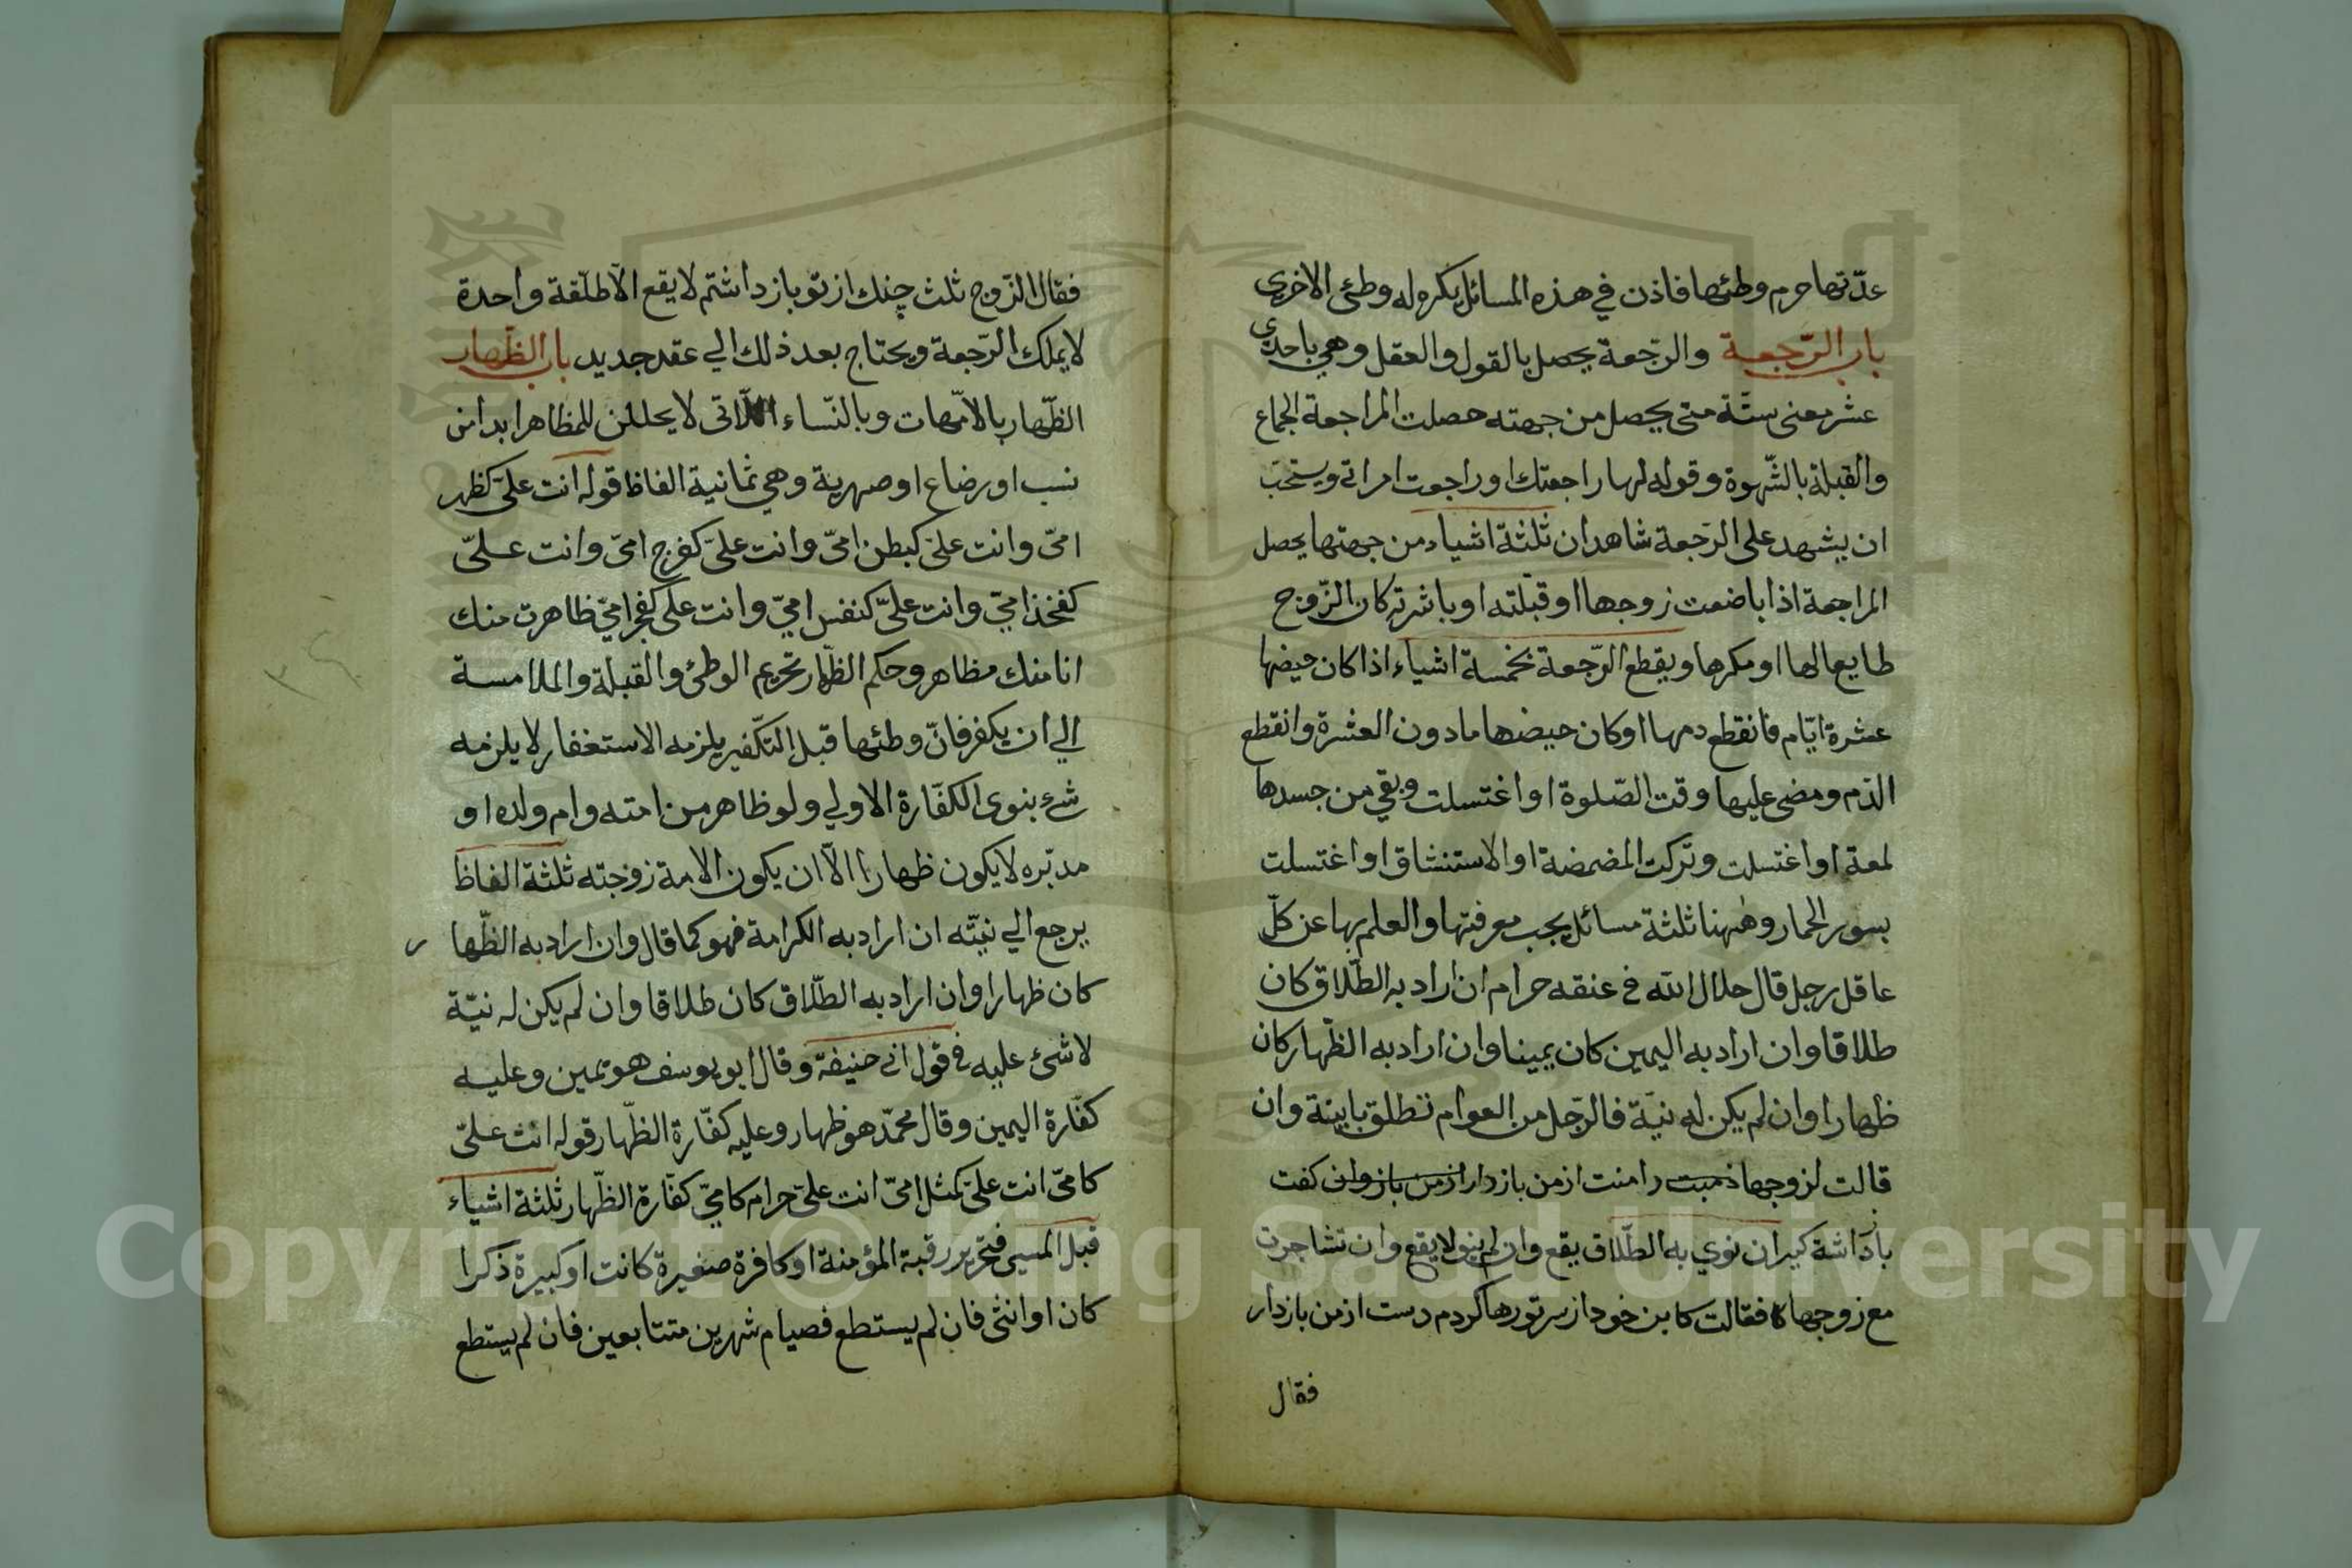 عدّتها حرم وطئها فاذن في هذه المسائل يكره له وطئ الاخرى
باب الرّجعة والرّجعة يحصل بالقول والعقل وهي باحدى
عشر معنى ستّة متى يحصل من جهته حصلت المراجعة الجماع
والقبلة بالشّهوة وقوله لها راجعتك او راجعت امراتي ويستحبّ
ان يشهد على الرّجعة شاهدان ثلثة اشياء من جهتها يحصل
المراجعة اذا باضعت زوجها او قبّلته او باشرته كان الزّوج
طايعا لها او مكرها ويقطع الرّجعة بخمسة اشياء اذا كان حيضها
عشرة ايّام فانقطع دمها او كان حيضها مادون العشرة وانقطع
الدّم ومضى عليها وقت الصّلوة او اغتسلت وبقي من جسدها
لمعة او اغتسلت وتركت المضمضة او الاستنشاق او اغتسلت
بسور الحمار وههنا ثلثة مسائل يجب معرفتها والعلم بها عن كلّ
عاقل رجل قال حلال الله في عنقه حرام ان اراد به الطّلاق كان
طلاقا وان اراد به اليمين كان يمينا وان اراد به الظّهار كان
ظهارا وان لم يكن له نيّة فالرّجل من العوام تطلق باينة وان
قالت لزوجها دست رامنت ازمن بازدار ازمن بازوان كفت
باداشة كير ان نوي به الطّلاق يقع وان لم ينو لا يقع وان تشاجرت
مع زوجها فقالت كابن خود از سر تو رها كردم دست ازمن بازدار
فقال
فقال الزّوج ثلث چنك ازتو بازداشتم لا يقع الّا طلّقة واحدة
لا يملك الرّجعة ويحتاج بعد ذلك الي عقد جديد باب الظّهار
الظّهار بالامّهات وبالنّساء اللّاتي لا يحللن للمظاهر ابدا من
نسب او رضاع او صهرية وهي ثمانية الفاظ قوله انت عليّ كظهر
امّي وانت عليّ كبطن امّي وانت عليّ كفرج امّي وانت عليّ
كفخذ امّي وانت عليّ كنفس امّي وانت علي كفجر امّي ظاهرت منك
انا منك مظاهر وحكم الظّهار تحريم الوطئ والقبلة والملامسة
الي ان يكفر فانّ وطئها قبل التكّفير يلزمه الاستغفار لا يلزمه
شيء بنوى الكفّارة الاولي ولو ظاهر من امته وام ولده او
مدبّره لا يكون ظهارا الّا ان يكون الامة زوجته ثلثة الفاظ
يرجع الي نيّته ان اراد به الكرامة فهو كما قال وان اراد به الظّها ر
كان ظهارا وان اراد به الطّلاق كان طلاقا وان لم يكن له نيّة
لا شئ عليه في قول ابي حنيفة وقال ابو يوسف هو يمين وعليه
كفّارة اليمين وقال محمّد هو ظهار وعليه كفّارة الظّهار قوله انت عليّ
كامّي انت عليّ كمثل امّي انت عليّ حرام كامّي كفّارة الظّهار ثلثة اشياء
قبل المسيس فتحرير رقبة المؤمنة او كافرة صغيرة كانت او كبيرة ذكرا
كان او انثى فان لم يستطع فصيام شهرين متتابعين فان لم يستطع
Copyright © King Saud University